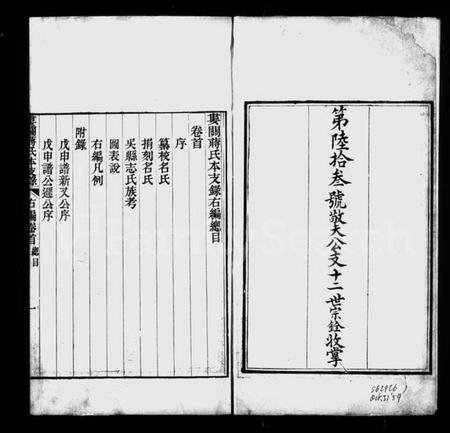 第陸拾叁號敬大公支十二世宗銓收掌
562426
Oct.31'59
婁關蔣氏本支錄右編總目
卷首
序
纂校名氏
捐刻名氏
吳縣志氏族考
圖表說
右編凡例
附錄
戊申譜新又公序
戊申譜公遲公序
婁關蔣氏本支錄 右編卷首 總目 一
FamilySearch